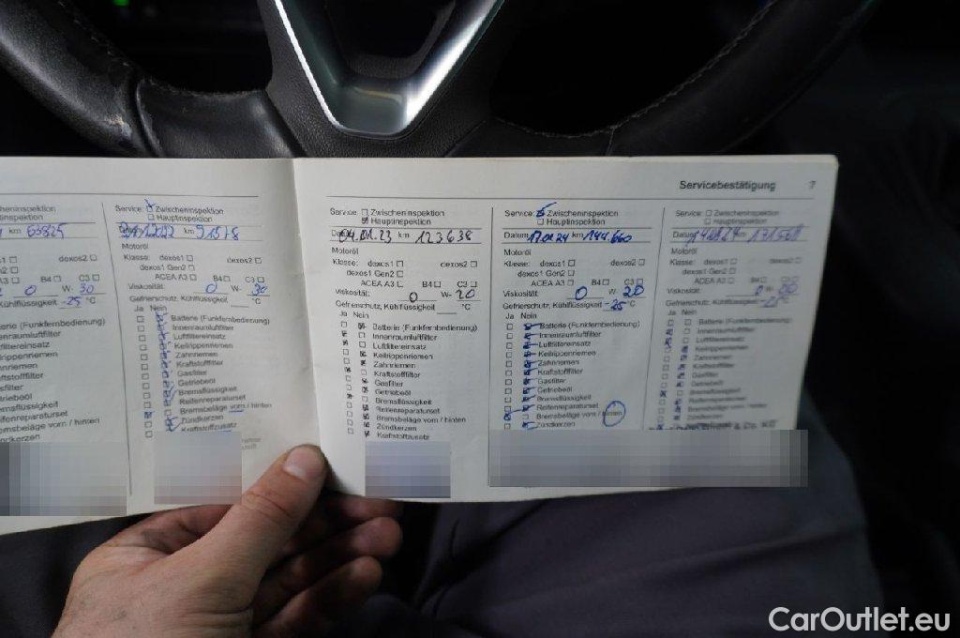 Servicebestätigung 7
Service: Zwischeninspektion
Hauptinspektion
km 63825
Motoröl
Klasse: dexos1 dexos2
dexos1 Gen2
ACEA A3 B4 C3
0 W- 30
Kühlflüssigkeit -25 °C
Batterie (Funkfernbedienung)
Innenraumluftfilter
Luftfiltereinsatz
Keilrippenriemen
Zahnriemen
Kraftstofffilter
Gasfilter
Getriebeöl
Bremsflüssigkeit
Reifenreparaturset
Bremsbeläge vorn / hinten
Zündkerzen
Service: Zwischeninspektion
Hauptinspektion
km 91578
Motoröl
Klasse: dexos1 dexos2
dexos1 Gen2
ACEA A3 B4 C3
Viskosität: 0 W- 30
Gefrierschutz, Kühlflüssigkeit -25 °C
Ja Nein
Batterie (Funkfernbedienung)
Innenraumluftfilter
Luftfiltereinsatz
Keilrippenriemen
Zahnriemen
Kraftstofffilter
Gasfilter
Getriebeöl
Bremsflüssigkeit
Reifenreparaturset
Bremsbeläge vorn / hinten
Zündkerzen
Kraftstoffzusatz
Service: Zwischeninspektion
Hauptinspektion
Datum 04.01.23 km 123638
Motoröl
Klasse: dexos1 dexos2
dexos1 Gen2
ACEA A3 B4 C3
Viskosität: 0 W- 20
Gefrierschutz, Kühlflüssigkeit °C
Ja Nein
Batterie (Funkfernbedienung)
Innenraumluftfilter
Luftfiltereinsatz
Keilrippenriemen
Zahnriemen
Kraftstofffilter
Gasfilter
Getriebeöl
Bremsflüssigkeit
Reifenreparaturset
Bremsbeläge vorn / hinten
Zündkerzen
Kraftstoffzusatz
Service: Zwischeninspektion
Hauptinspektion
Datum 17.01.24 km 144.660
Motoröl
Klasse: dexos1 dexos2
dexos1 Gen2
ACEA A3 B4 C3
Viskosität: 0 W- 20
Gefrierschutz, Kühlflüssigkeit -25 °C
Ja Nein
Batterie (Funkfernbedienung)
Innenraumluftfilter
Luftfiltereinsatz
Keilrippenriemen
Zahnriemen
Kraftstofffilter
Gasfilter
Getriebeöl
Bremsflüssigkeit
Reifenreparaturset
Bremsbeläge vorn / hinten
Zündkerzen
Service: Zwischeninspektion
Hauptinspektion
km
Motoröl
Klasse: dexos1 dexos2
dexos1 Gen2
ACEA A3 B4 C3
Viskosität:
Gefrierschutz, Kühlflüssigkeit
Ja Nein
Batterie (Funkfernbedienung)
Innenraumluftfilter
Luftfiltereinsatz
Keilrippenriemen
Zahnriemen
Kraftstofffilter
Gasfilter
Getriebeöl
Bremsflüssigkeit
Reifenreparaturset
Bremsbeläge vorn / hinten
CarOutlet.eu